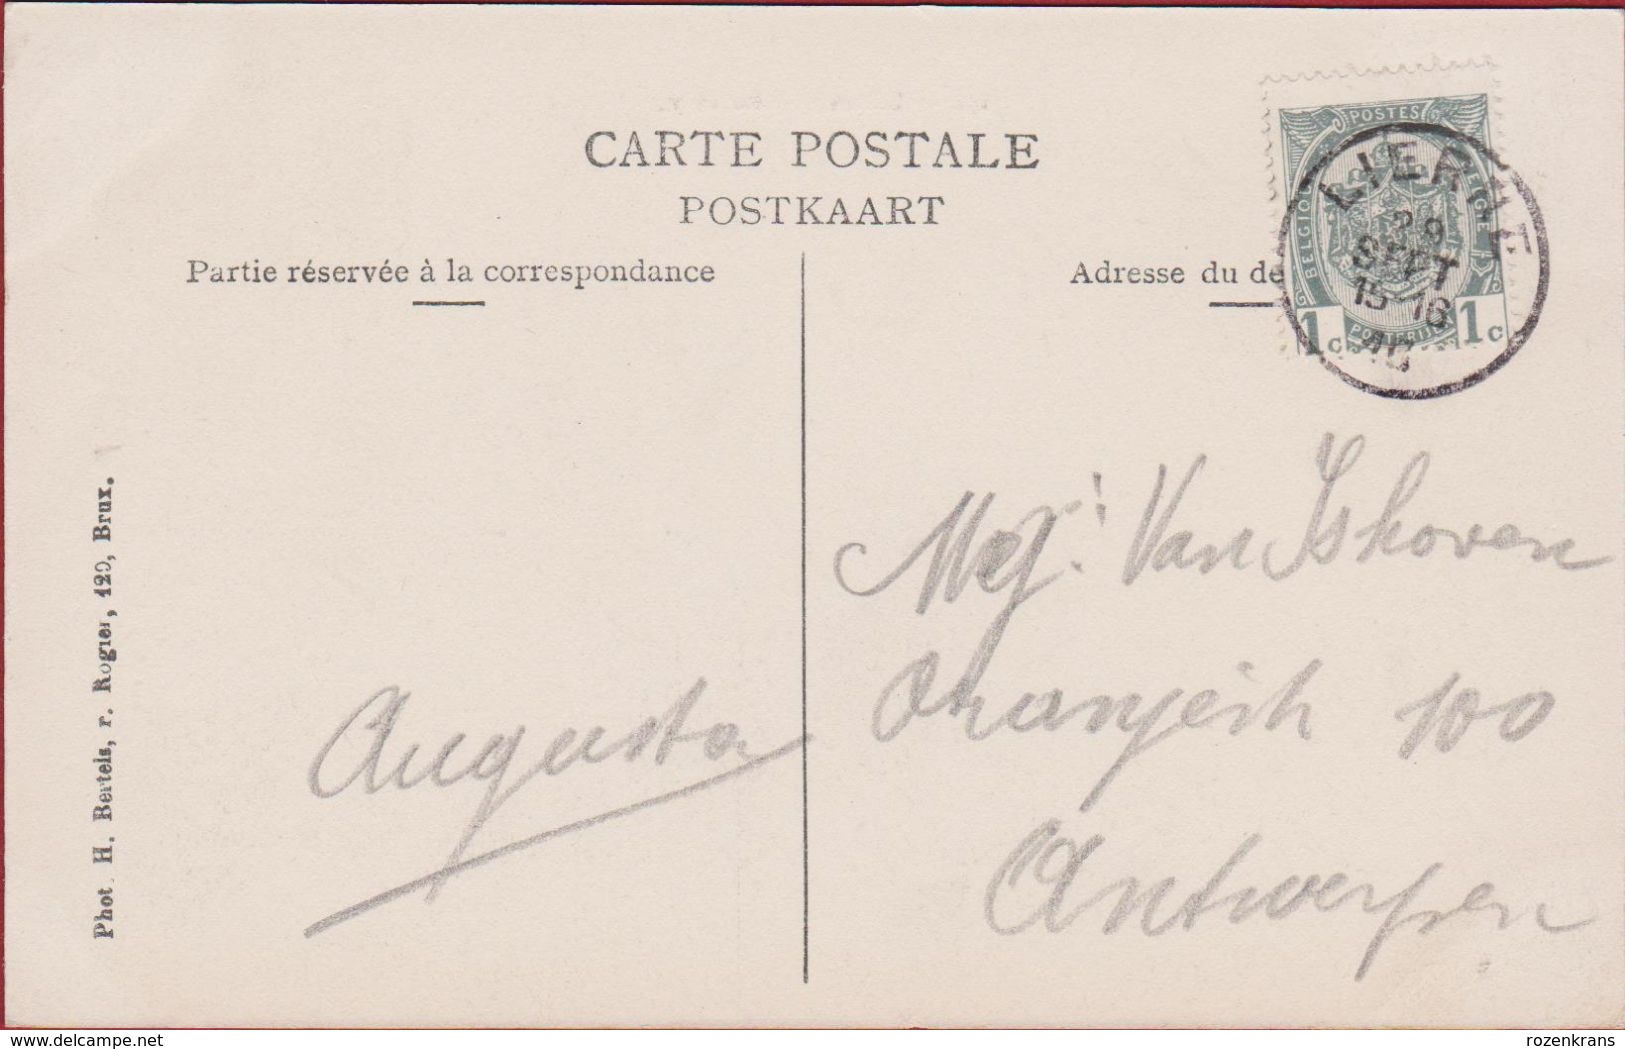 CARTE POSTALE
POSTKAART
Partie réservée à la correspondance
Adresse du de
POSTES
BELGIQUE
BELGIE
POSTERIJEN
1c
1c
LIERNE
SEPT
15-16
10
Mej: Van Ishoven
100
Antwerpen
Augusta
Phot. H. Bertels, r. Rogier, 120, Brux.
www.delcampe.net
rozenkrans